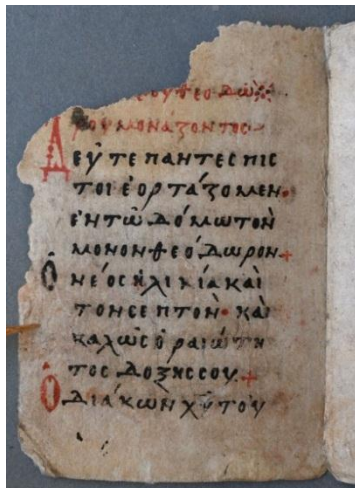 θεοδώ
ρου μονάζοντος
Δεῦτε πάντες πισ
τοὶ ἑορτάζομεν·
ἐν τῶ δόμω τὸν
μόνον θεόδωρον+
Ὁ νέος ἡλικία καὶ
τον σεπτὸν· καὶ
καλῶς ὁ ραιώτη
τος δοξης σου+
Ὁ διάκων χύ του